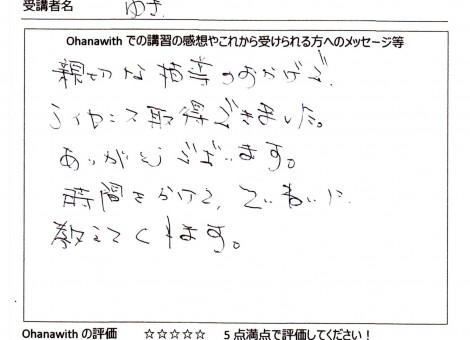 受講者名 ゆき
Ohanawith での講習の感想やこれから受けられる方へのメッセージ等
親切な指導のおかげで、
ライセンス取得できました。
ありがとうございます。
時間をかけて、ていねいに
教えてくれます。
Ohanawith の評価 ☆☆☆☆☆ 5 点満点で評価してください！